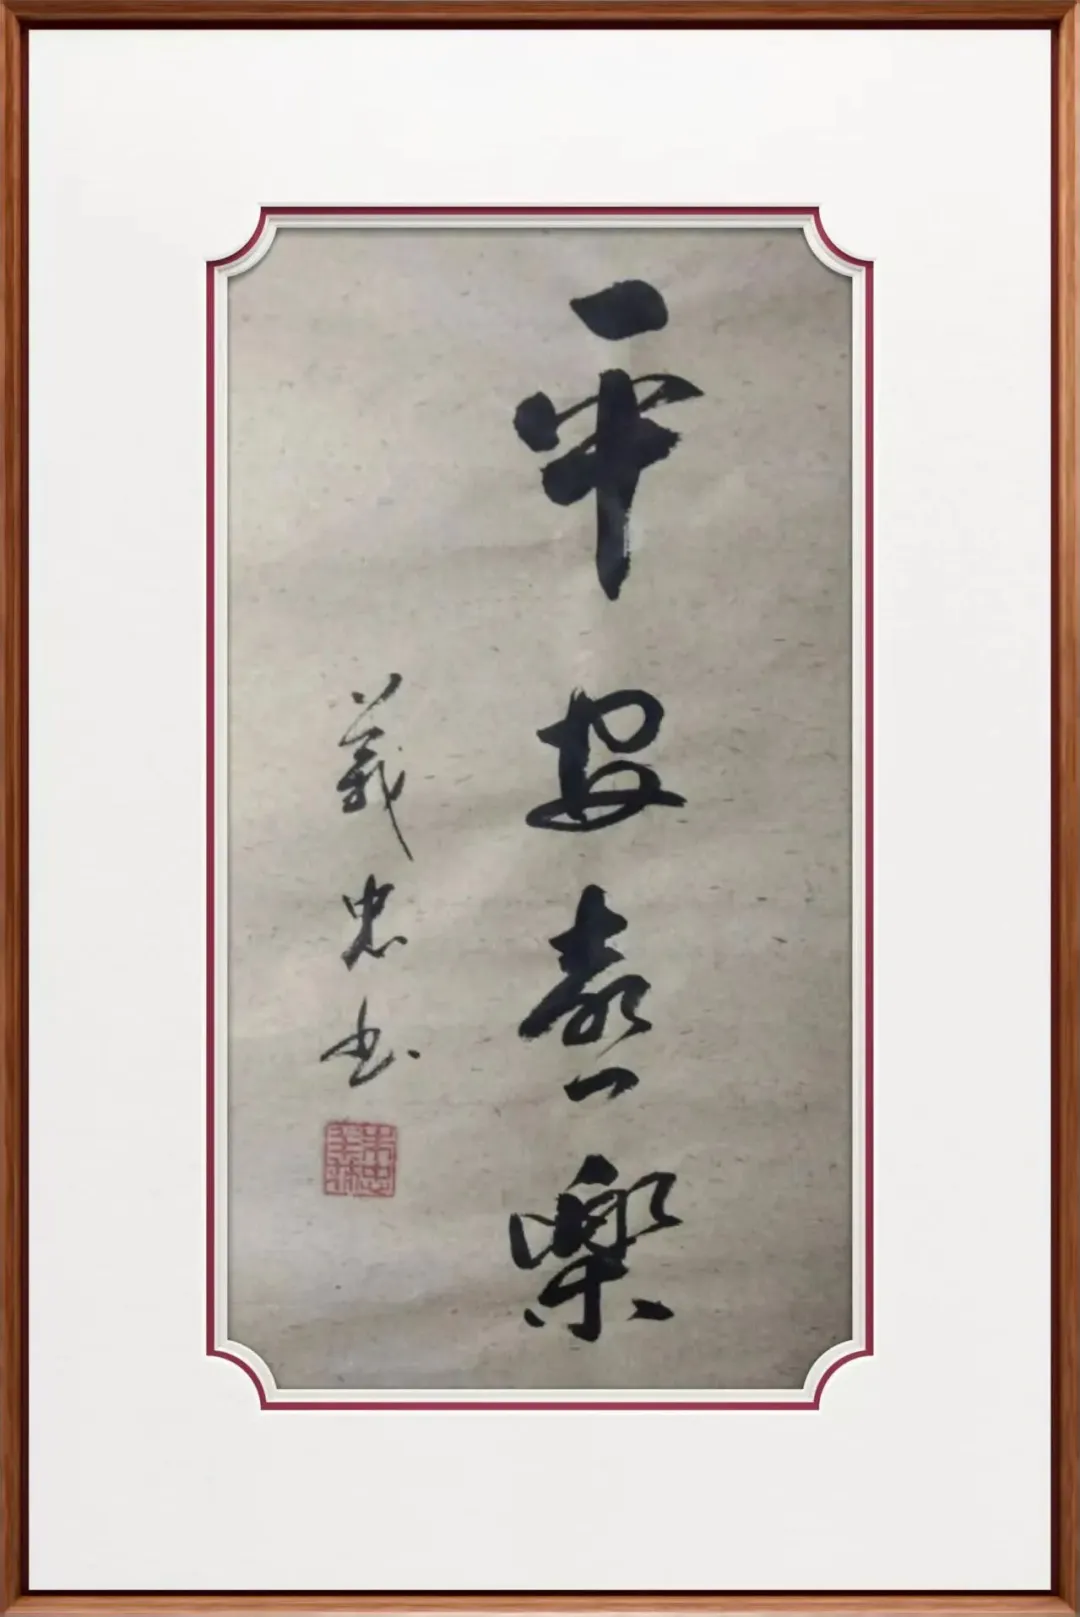 平安喜樂
義忠书